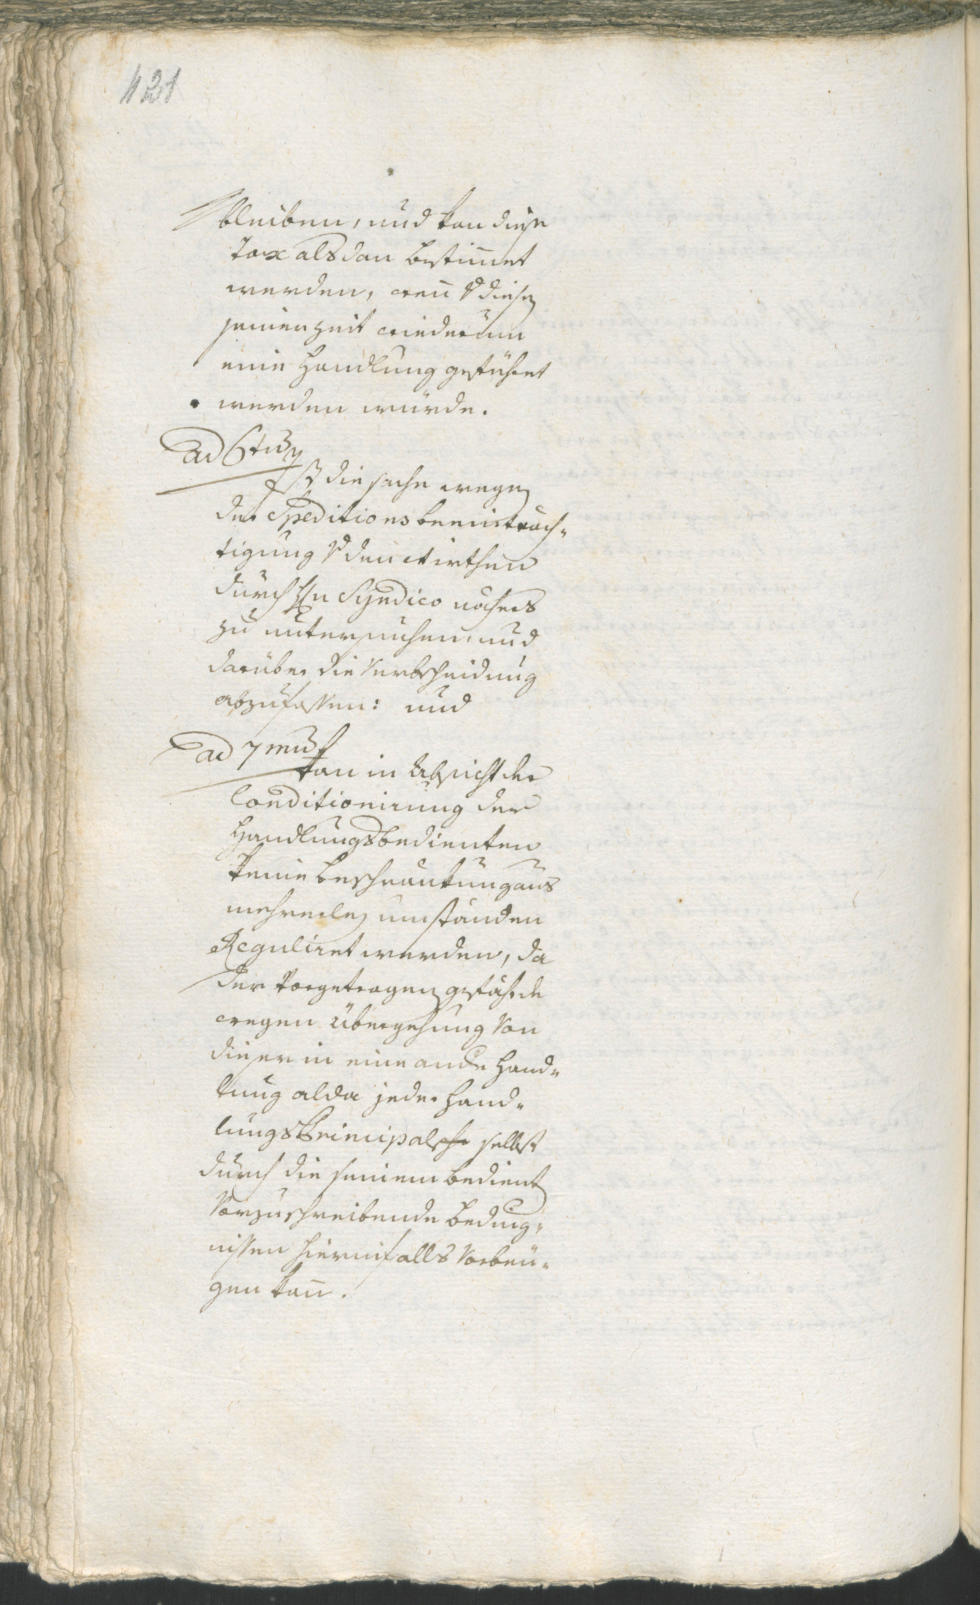 421
bleiben, und kan diese
Tax alsdan bestim̄et
werden, wen̄ diesen
seiner zeit wiederum
eine Handlung geführet
werden würde.
ad 6tum
Ist die sache wegen
der Speditions beeinträch-
tigung den wirthen
durch Hn Syndico näheres
zu untersuchen, und
darüber die Verbscheidung
abzufassen: und
ad 7mum
kan in Absicht der
Conditionirung der
Handlungsbedienten
keine beschränkung aus
mehrerley umständen
Reguliret werden, da
der vorgetragen gefährde
wegen übergehung von
dieser in eine andre Hand-
lung alda jeder Hand-
lungs Principal selbst
durch die seinem bedienten
vorzuschreibende beding-
nissen hierinfalls vorbeü-
gen kan̄.